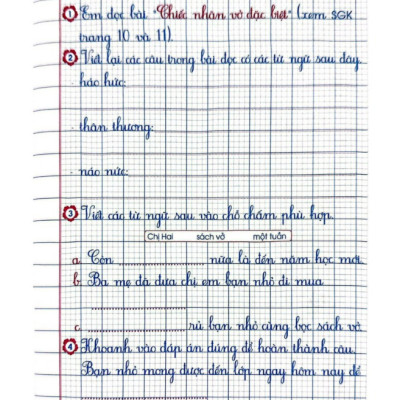 1 Em đọc bài "Chiếc nhãn vở đặc biệt" (xem SGK
trang 10 và 11).
2 Viết lại các câu trong bài đọc có các từ ngữ sau đây
- háo hức:
- thân thương:
- náo nức:
3 Viết các từ ngữ sau vào chỗ chấm phù hợp.
Chị Hai sách vở một tuần
a. Còn ........................ nữa là đến năm học mới.
b. Ba mẹ đã đưa chị em bạn nhỏ đi mua
........................
c. ........................ rủ bạn nhỏ cùng bọc sách vở
4 Khoanh vào đáp án đúng để hoàn thành câu.
Bạn nhỏ mong được đến lớp ngay hôm nay để
........................